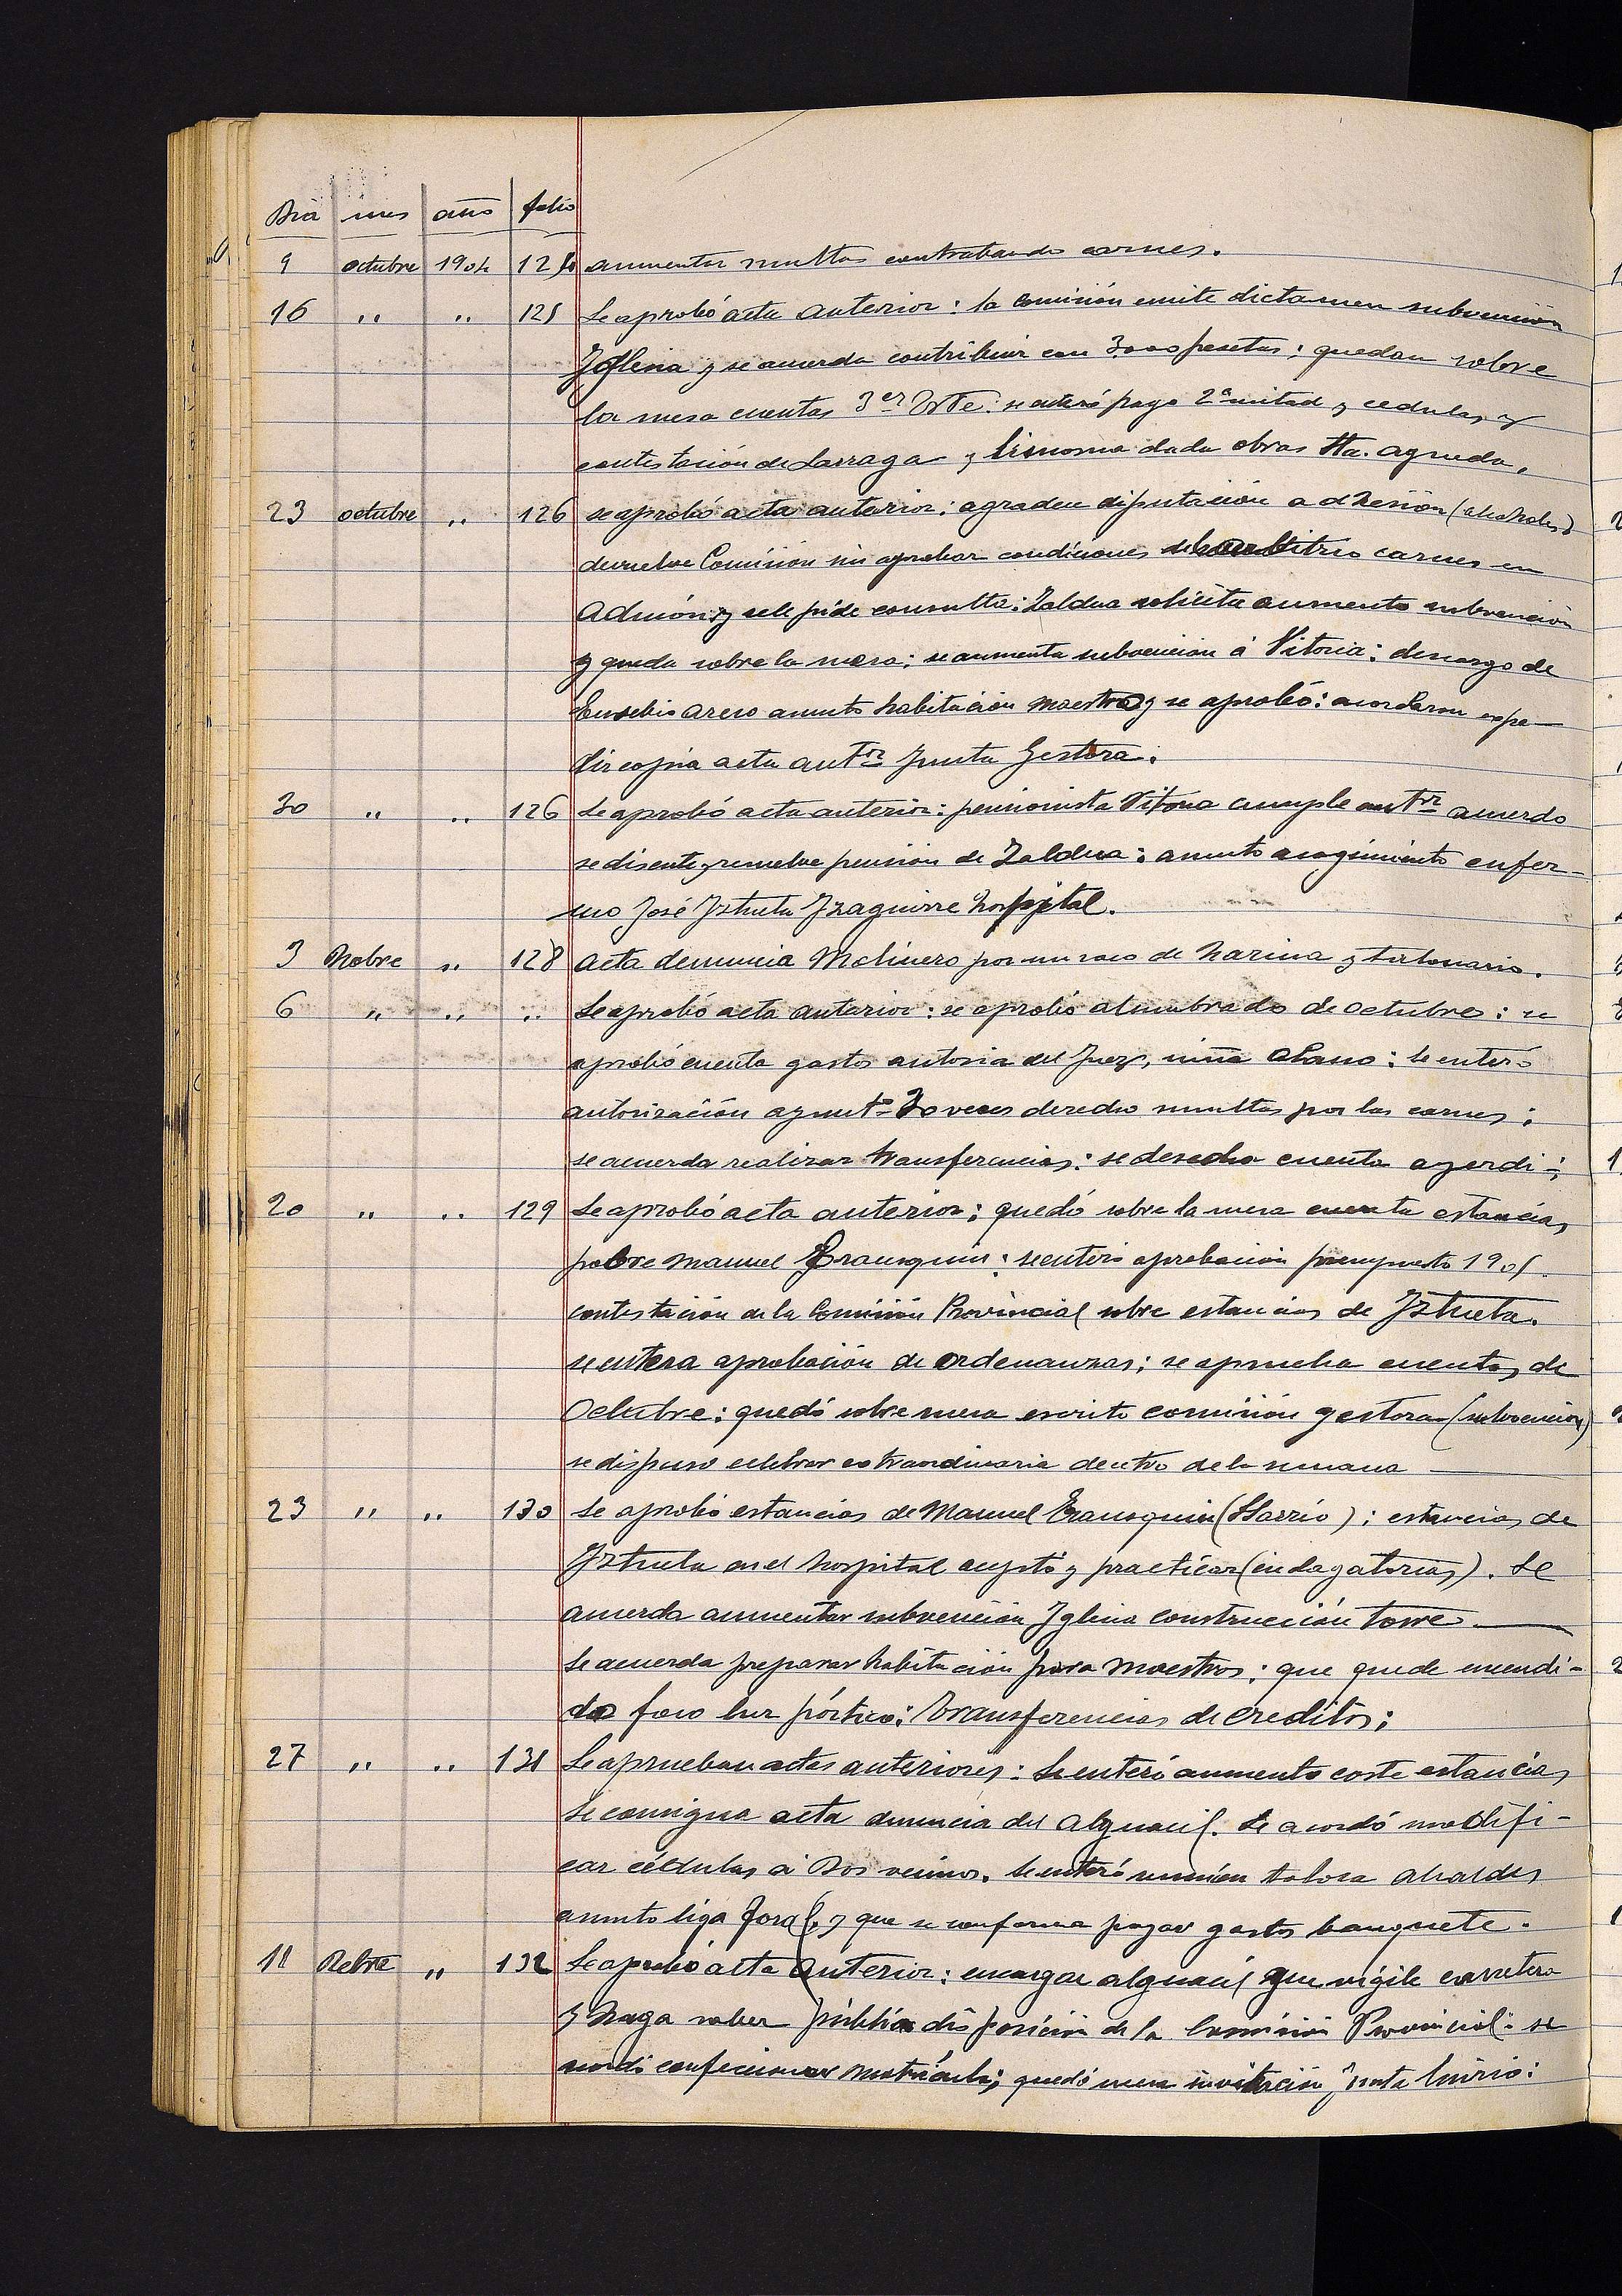 Dia mes año folio
9 octubre 1904 124 aumentar multas contrabando carnes.
16 " " 125 Se aprobó acta anterior: la comisión emite dictamen subvención
Iglesia y se acuerda contribuir con 3000 pesetas; quedan sobre
la mesa cuentas 3er Trte: se enteró pago 2ª mitad y cedulas y
contestación de Larraga y limosna dada obras Sta. Agueda.
23 octubre " 126 se aprobó acta anterior: agradece diputación adhesión (alcoholes)
devuelve Comisión sin aprobar condiciones del arbitrio carnes en
Admón. y se le pide consulta: Zaldua solicita aumento subvención
y queda sobre la mesa; se aumenta subvención á Vitoria: descargo de
Eusebio asunto habitación maestra y se aprobó: acordaron expe-
dir copia acta antr Junta Gestora.
30 " " 126 Se aprobó acta anterior: pensionista Vitoria cumple antr acuerdo
se discute y resuelve pensión de Zaldua: asunto acogimiento enfer-
mo José Iztueta Izaguirre hospital.
3 Nobre " 128 acta denuncia Molinero por un saco de harina y tartanario.
6 " " " Se aprobó acta anterior: se aprobó alumbrado de octubre: se
aprobó cuenta gastos autosia del Juez, niña: Se enteró
autorización ayuntº 30 veces derecho multas por las carnes;
se acuerda realizar transferencias: se desecha cuenta ayerdi;
20 " " 129 Se aprobó acta anterior; quedó sobre la mesa cuenta estancias
pobre Manuel Erausquin: se enteró aprobación presupuesto 1905.
contestación de la Comisión Provincial sobre estancias de Iztueta.
se entera aprobación de ordenanzas; se aprueba cuentas de
Octubre: quedó sobre mesa escrito comisión gestora (subvención)
se dispuso celebrar extraordinaria dentro de la semana
23 " " 130 Se aprobó estancias de Manuel Erausquin (Harrio); estancias de
Iztueta en el hospital aceptó y practicar (indagatorias). Se
acuerda aumentar subvención Iglesia construcción torre
Se acuerda preparar habitación para maestros; que quede encendi-
do foco luz pórtico: transferencias de creditos;
27 " " 131 Se aprueban actas anteriores: Se enteró aumento coste estancias
Se consigna acta denuncia del alguacil. Se acordó modifi-
car cédulas á Dos vecinos. Se enteró reunión tolosa alcaldes
asunto liga foral, y que se conforma pagar gastos banquete.
11 Debre " 132 Se aprobó acta anterior: encargar alguacil que vigile carretera
y haga saber público disposición de la Comisión Provincial: se
acordó confeccionar matrícula; quedó mesa invitación junta